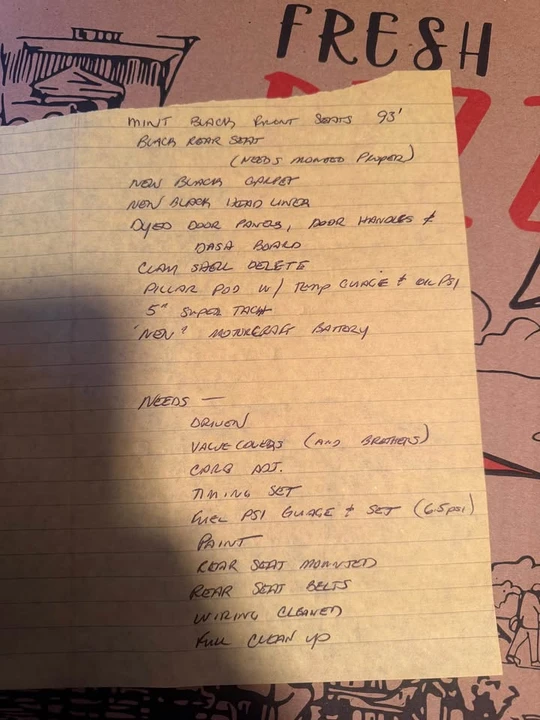 FRESH
MINT BLACK FRONT SEATS 93'
BLACK REAR SEAT
(NEEDS MOUNTED PROPER)
NEW BLACK CARPET
NEW BLACK HEAD LINER
DYED DOOR PANELS, DOOR HANDLES &
DASH BOARD
CLAM SHELL DELETE
PILLAR POD W/ TEMP GUAGE & OIL PSI
5" SUPER TACH
"NEW" MOTORCRAFT BATTERY
NEEDS —
DRIVEN
VALVE COVERS (AND BROTHERS)
CARB ADJ.
TIMING SET
FUEL PSI GUAGE & SET (6.5psi)
PAINT
REAR SEAT MOUNTED
REAR SEAT BELTS
WIRING CLEANED
FULL CLEAN UP